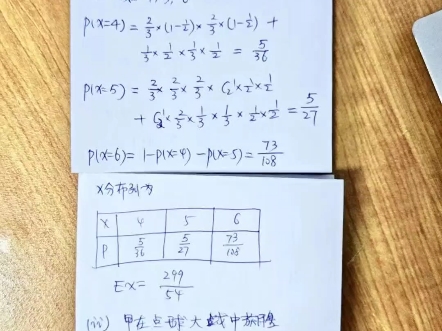 P(X=4) = 2/3 × (1-1/2) × 2/3 × (1-1/2) +
1/3 × 1/2 × 1/3 × 1/2 = 5/36
P(X=5) = 2/3 × 2/3 × 2/3 × C₂¹ × 1/2 × 1/2
+ C₂¹ × 2/3 × 1/3 × 1/3 × 1/2 × 1/2 = 5/27
P(X=6) = 1-P(X=4)-P(X=5) = 73/108
X分布列为
X 4 5 6
P 5/36 5/27 73/108
EX = 299/54
(iii) 甲在点球大战中